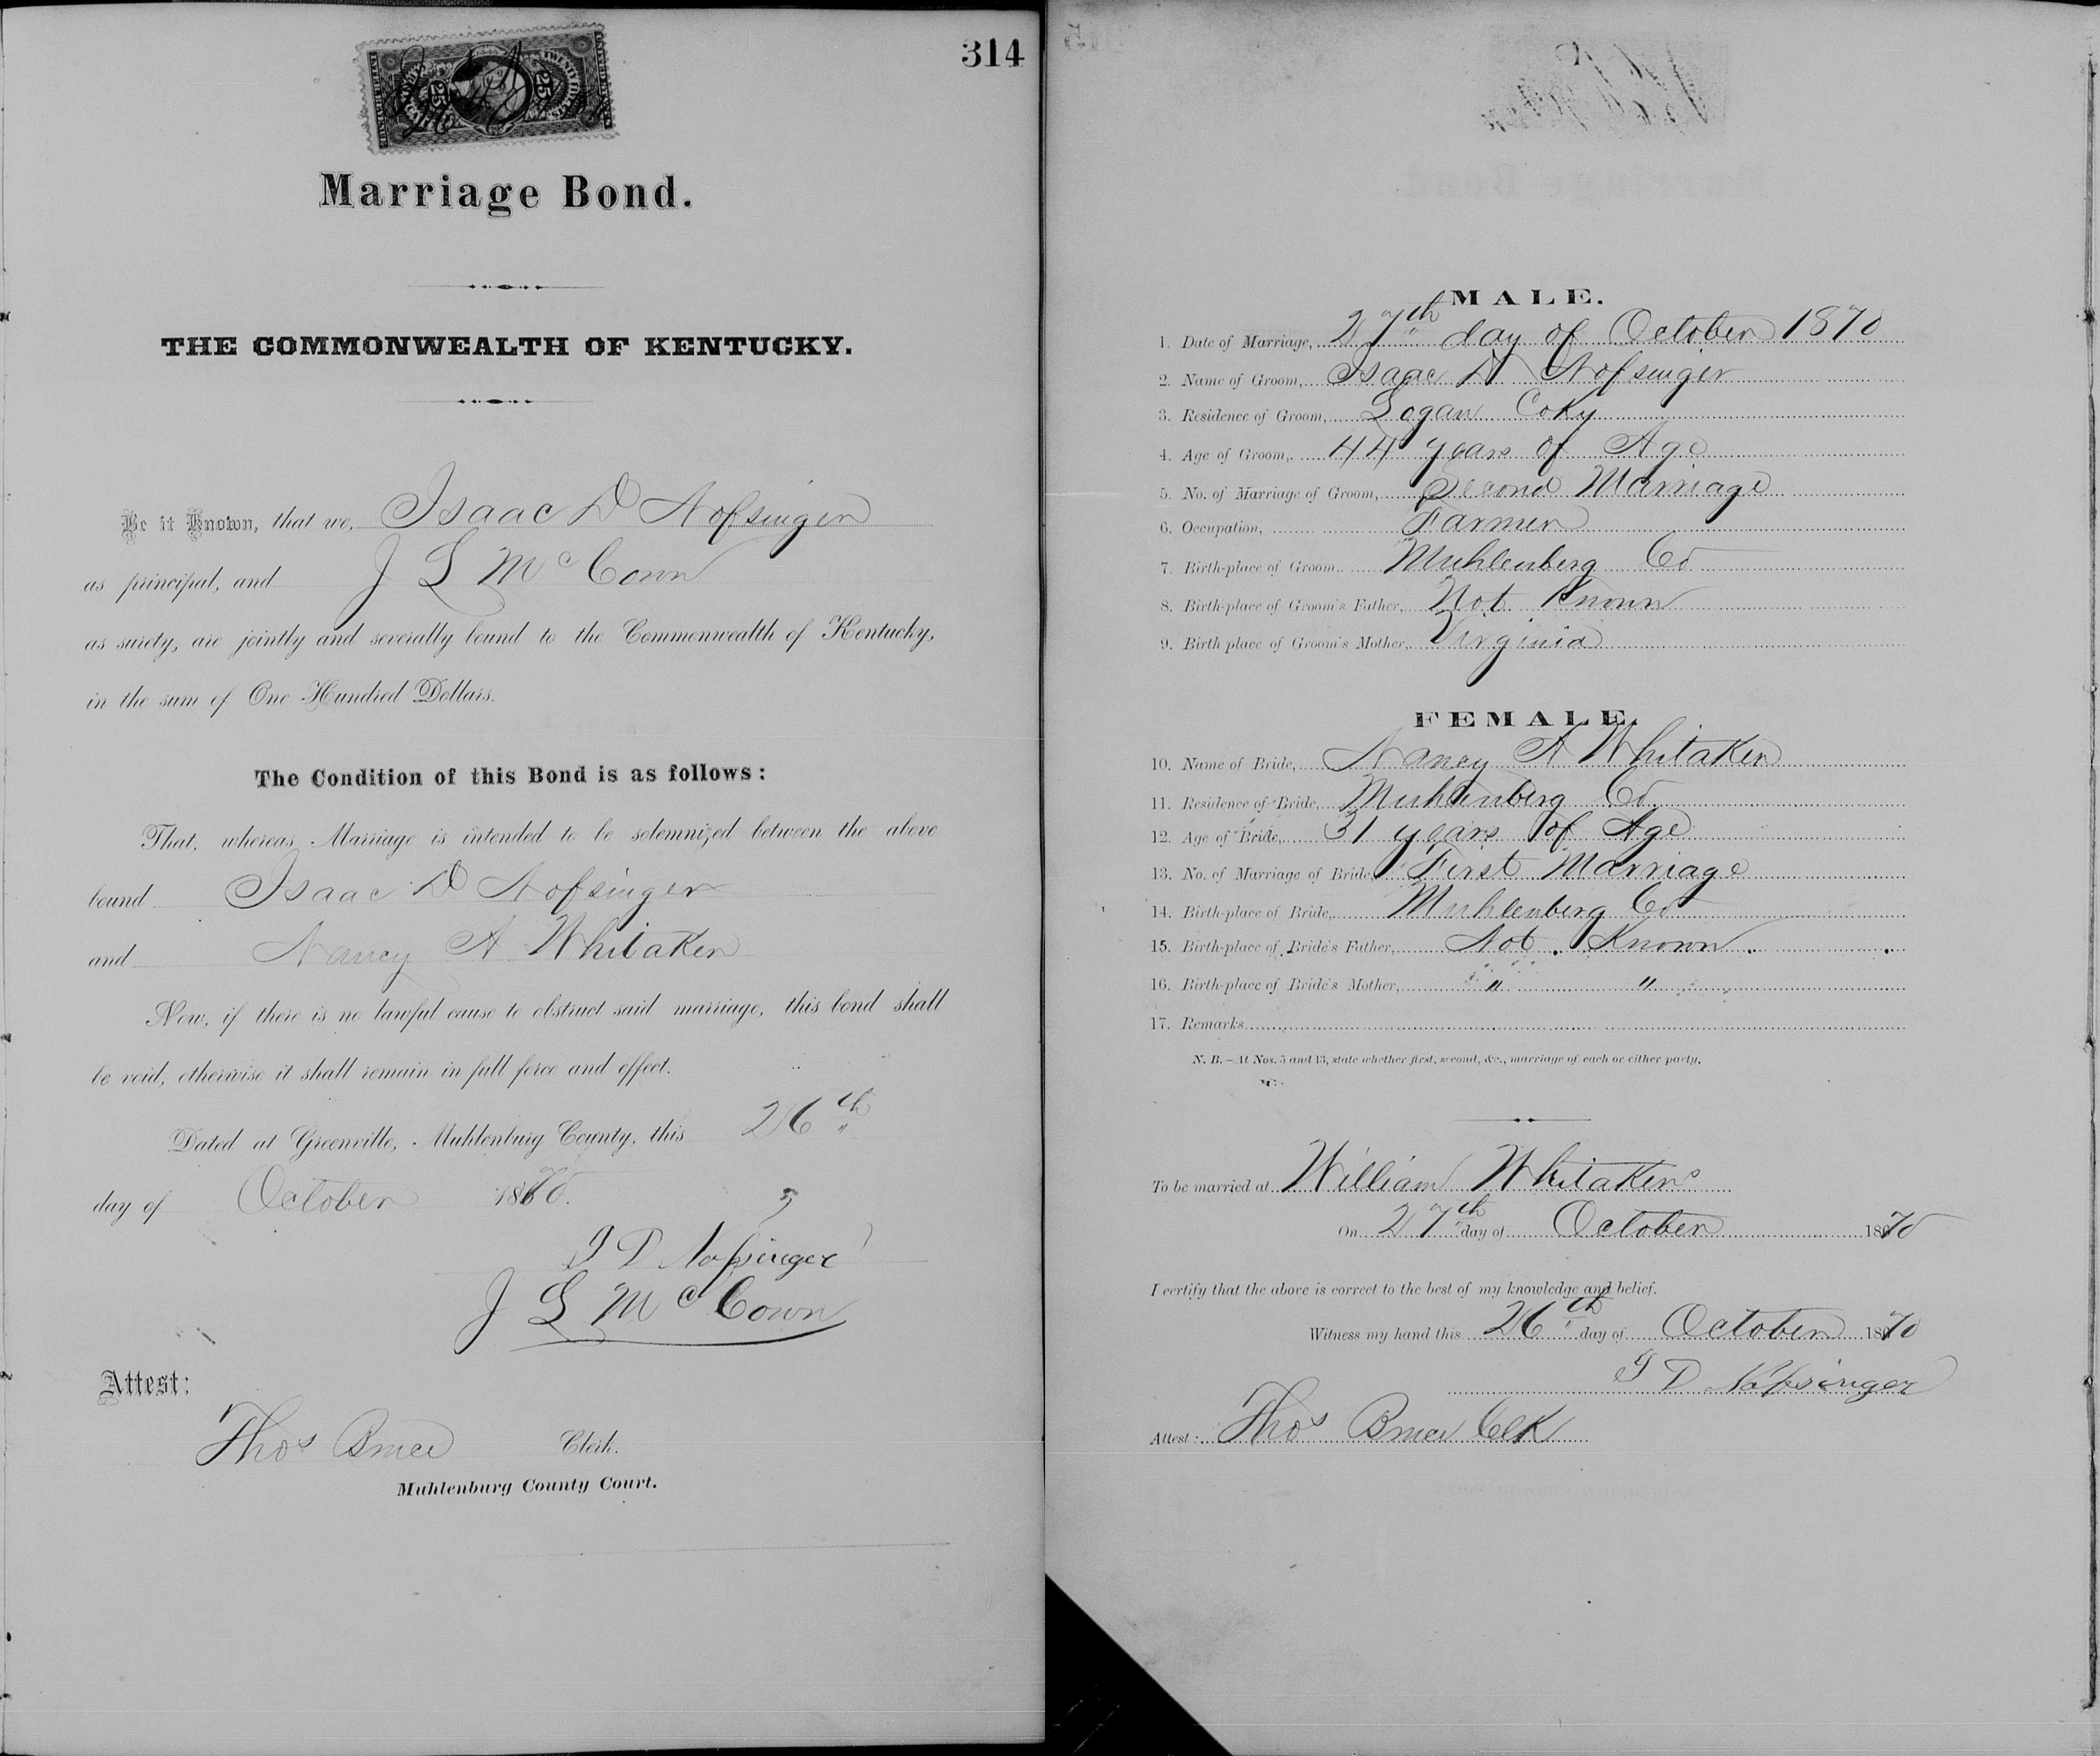 314
25 25
Marriage Bond.
THE COMMONWEALTH OF KENTUCKY.
Be it Known, that we, Isaac D Nofsinger
as principal, and J L McCown
as surety, are jointly and severally bound to the Commonwealth of Kentucky,
in the sum of One Hundred Dollars.
The Condition of this Bond is as follows:
That, whereas Marriage is intended to be solemnized between the above
bound Isaac D Nofsinger
and Nancy A Whitaker
Now, if there is no lawful cause to obstruct said marriage, this bond shall
be void, otherwise it shall remain in full force and effect.
Dated at Greenville, Muhlenburg County, this 26th
day of October 1870.
I D Nofsinger
J L McCown
Attest:
Thos Bruce Clerk.
Muhlenburg County Court.
MALE.
1. Date of Marriage, 27th day of October 1870
2. Name of Groom, Isaac D Nofsinger
3. Residence of Groom, Logan Co Ky
4. Age of Groom, 44 years of Age
5. No. of Marriage of Groom, Second Marriage
6. Occupation, Farmer
7. Birth-place of Groom Muhlenberg Co
8. Birth-place of Groom's Father, Not Known
9. Birth place of Groom's Mother, Virginia
FEMALE.
10. Name of Bride, Nancy A Whitaker
11. Residence of Bride, Muhlenberg Co
12. Age of Bride, 31 years of Age
13. No. of Marriage of Bride, First Marriage
14. Birth-place of Bride, Muhlenberg Co
15. Birth-place of Bride's Father, Not Known
16. Birth-place of Bride's Mother, " "
17. Remarks
N. B.—At Nos. 5 and 13, state whether first, second, &c., marriage of each or either party.
To be married at William Whitakers
On 27th day of October 1870
I certify that the above is correct to the best of my knowledge and belief.
Witness my hand this 26th day of October 1870
I D Nofsinger
Attest: Thos Bruce Clk